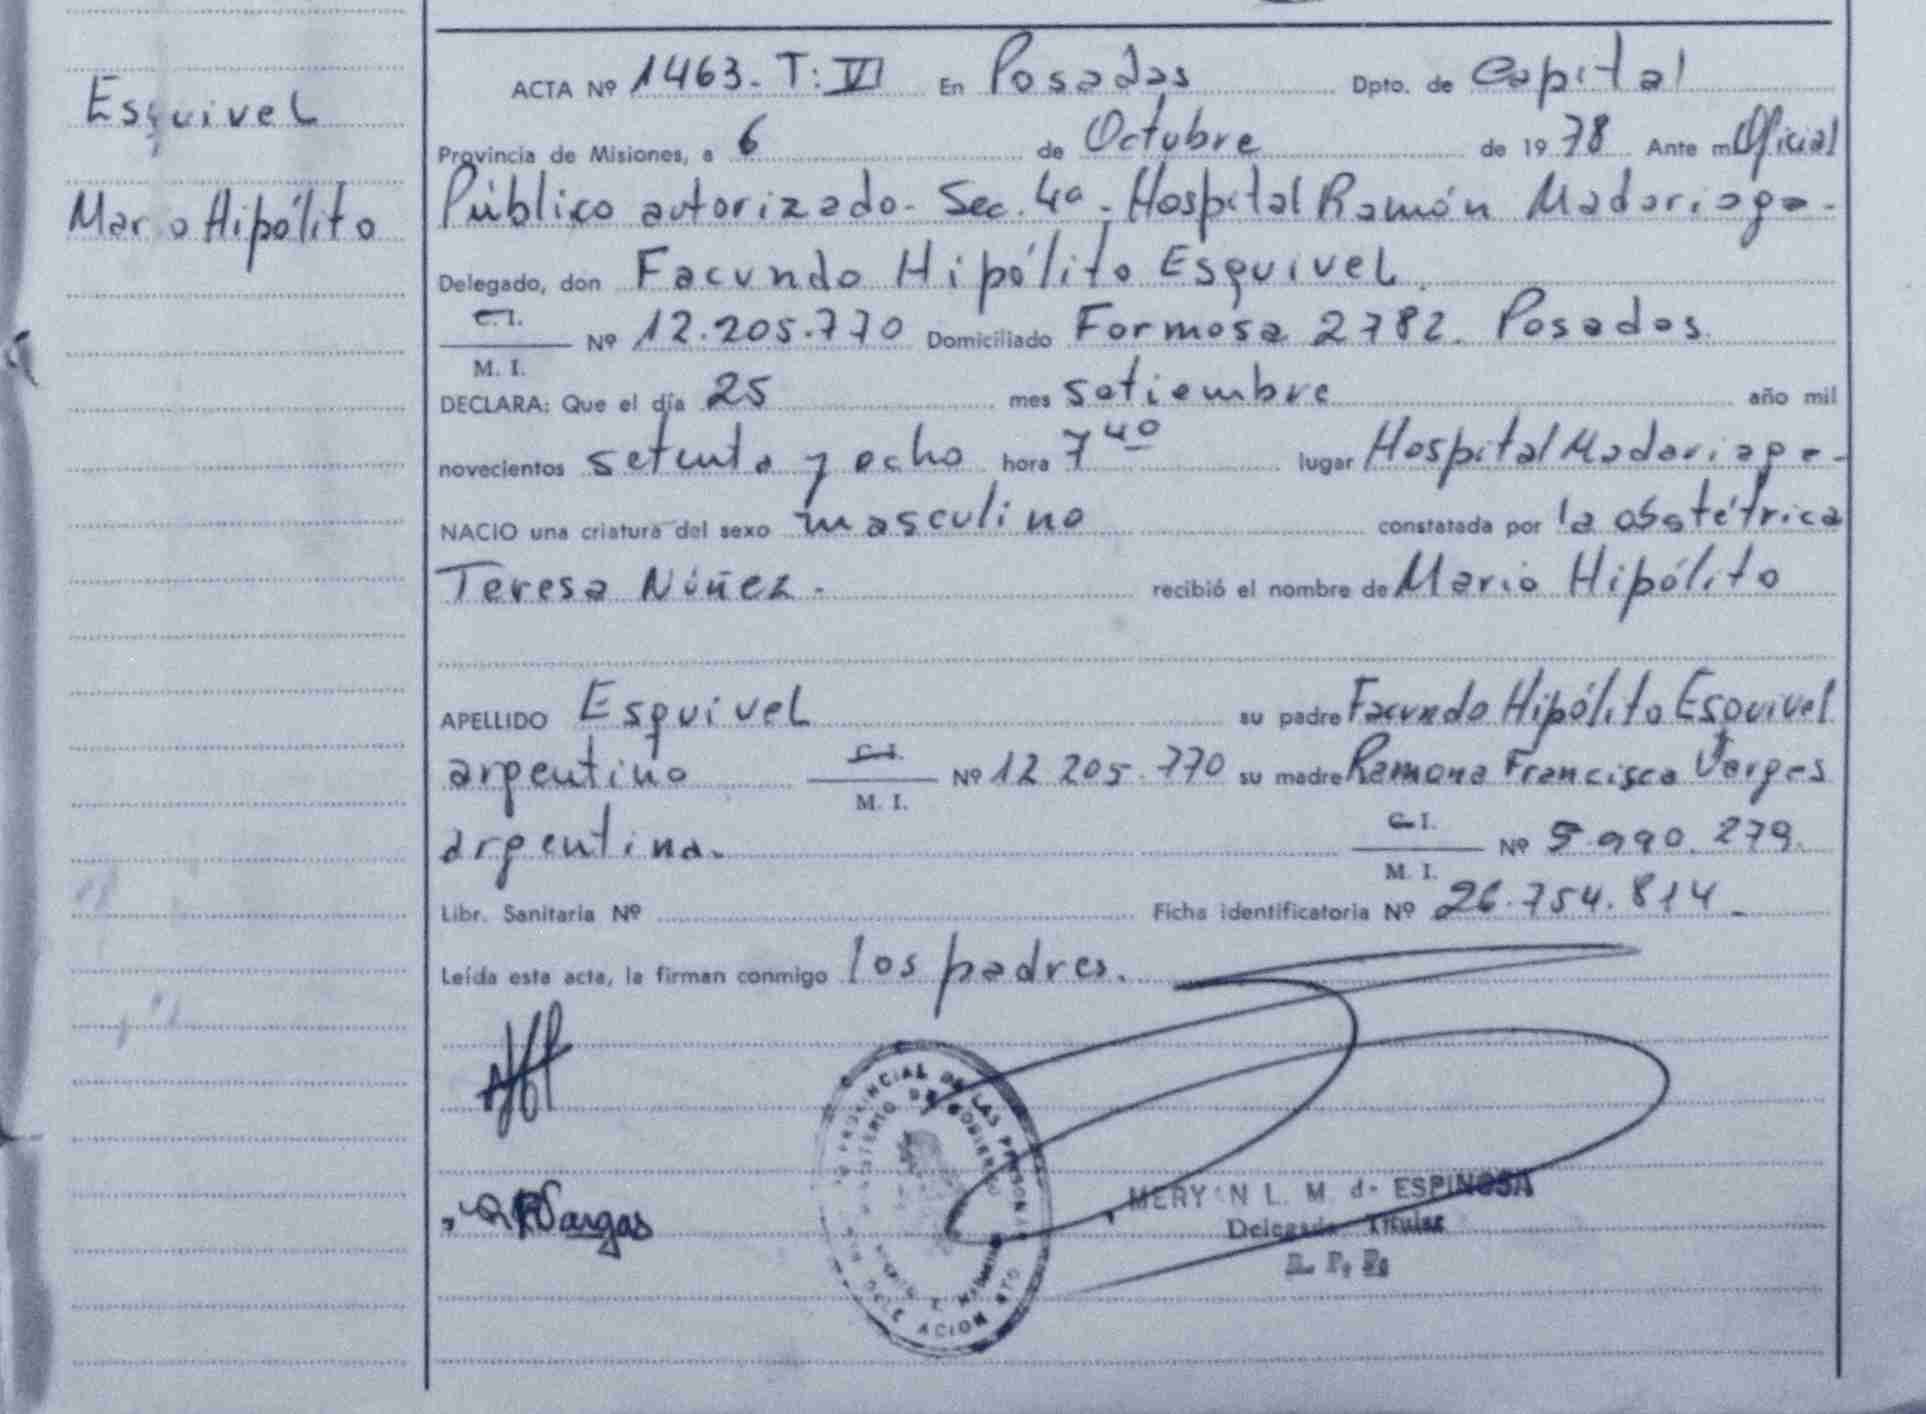 Esquivel
Mario Hipólito
ACTA Nº 1463. T: VI En Posadas Dpto. de Capital
Provincia de Misiones, a 6 de Octubre de 1978 Ante mí Oficial
Público autorizado. Sec. 4ª. Hospital Ramón Madariaga.
Delegado, don Facundo Hipólito Esquivel
C. I.
Nº 12.205.770 Domiciliado Formosa 2782. Posadas.
M. I.
DECLARA: Que el día 25 mes setiembre año mil
novecientos setenta y ocho hora 7 40 lugar Hospital Madariaga.
NACIO una criatura del sexo masculino constatada por la obstétrica
Teresa Núñez. recibió el nombre de Mario Hipólito
APELLIDO Esquivel su padre Facundo Hipólito Esquivel
C. I.
argentino Nº 12 205.770 su madre Ramona Francisca Vargas
M. I.
C. I.
argentina. Nº 5.990.279.
M. I.
Libr. Sanitaria Nº Ficha identificatoria Nº 26.754.814
Leída esta acta, la firman conmigo los padres.
PROVINCIAL DE LAS PERSONAS
MINISTERIO DE GOBIERNO
Vargas
L. M. de ESPINOSA
Delegada Titular
R. P. P.